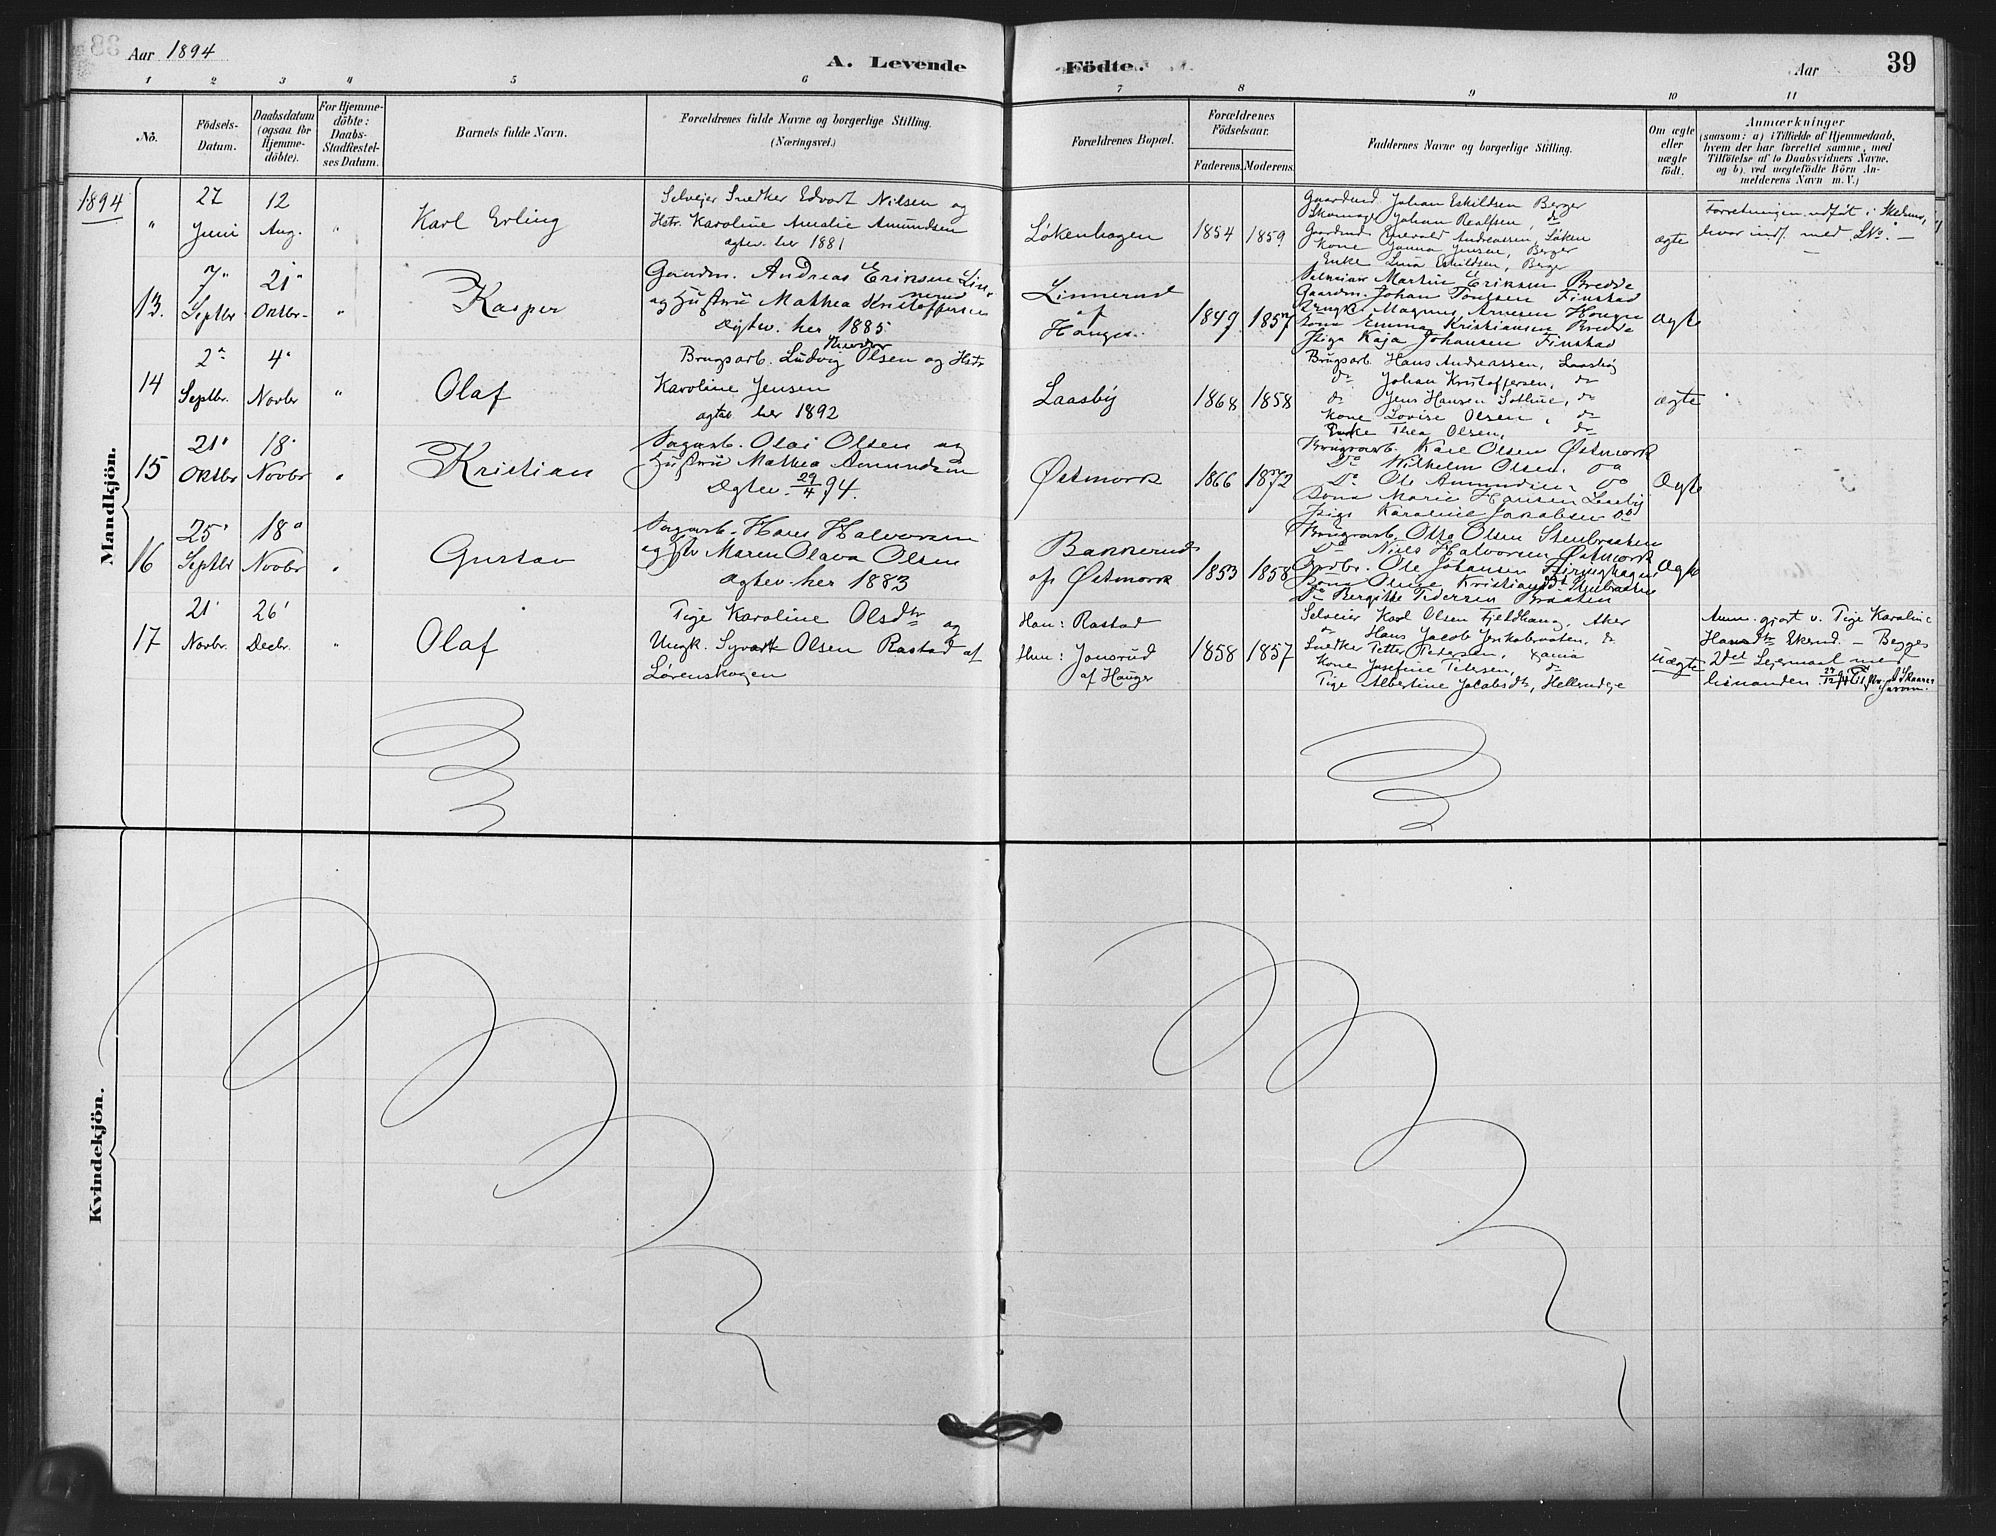 Aar 1894
A. Levende Födte.
Aar
39
1 2 3 4 5 6 7 8 9 10 11
No.
Födsels-Datum.
Daabsdatum (ogsaa for Hjemme-döbte).
For Hjemme-döbte: Daabs-Stadfæstel-ses Datum.
Barnets fulde Navn.
Forældrenes fulde Navne og borgerlige Stilling.
(Næringsvei.)
Forældrenes Bopæl.
Forældrenes Födselsaar.
Faderens. Moderens.
Faddernes Navne og borgerlige Stilling.
Om ægte eller uægte födt.
Anmærkninger
(saasom: a) i Tilfælde af Hjemmedaab,
hvem der har forrettet samme, med
Tilföielse af to Daabsvidners Navne,
og b) ved uægtefödte Börn An-
melderens Navn m. V.)
Mandkjön.
1894
" 27 Juni 12 Aug. "
Karl Erling
Selvejer Snedker Edvart Nilsen og
Hstr. Karoline Amalie Amundsen
ægtev. her 1881
Løkenhagen
1854 1859
Gaardmd. Johan Eskildsen Berger
Skomag. Johan Realfsen, do
Gaardmd. Enevald Andreassen, Løken
Kone Janna Jensen, Berger
Enke Lina Eskildsen, Berger
ægte
Forretningen udført i Skedsmo,
hvor indf. med LNo. —
13. 7 Septbr 21 Oktbr "
Kasper
Gaardm. Andreas Eriksen Lin-
nerud
og Hustru Mathea Kristoffersen
Ægtev. her 1885
Linnerud
af
Hauger.
1849 1857
Martin Eriksen Bredde
Gaardm. Johan Poulsen Finstad
Ungk. Magnus Arnesen Hauger
Kona Emma Kristiansen Bredde
Pige Kaja Johansen Finstad
Ægte
14 2 Septbr. 4 Novbr "
Olaf
Brugsarb. Ludvig Olsen og Hstr
Karoline Jensen
ægtev her 1892
Laasby
1868 1858
Brugsarb. Hans Andreassen, Laasby
do Johan Kristoffersen, do
do Jens Hansen, do
Kone Lovise Olsen, do
Enke Thea Olsen, do
ægte
15 21 Oktbr 18 Novbr "
Kristian
Sagarb. Olai Olsen og
Hustru Mathea Amundsen
Ægtev. 29/4 94.
Østmork
1866 1872
Brugsarb. Karl Olsen Østmork
Do Wilhelm Olsen. Do
Do Ole Amundsen. Do
Kona Marie Hansen Laasby
Pige Karoline Jakobsen Do
Ægte
16 25 Septbr 18 Novbr "
Gustav
Sagarb. Hans Halvorsen
og Hstr Maren Olava Olsen
Ægtev. her 1883
Bakkerud
af Østmork
1853 1858
Brugsarb. Otto Olsen Stenbraaten
Do Niels Halvorsen Østmork
Ole Johansen
Kona Oline Kristians Dt Stenbraaten
Do Bergitte Pedersen Braaten
Ægte
17 21 Novbr. 26 Decbr. "
Olaf
Pige Karoline Olsdtr og
Ungk. Syvart Olsen Rastad af
Lörenskogen
Han: Rastad
Hun: Jonsrud
af Hauger
1858 1857
Selveier Karl Olsen Fjeldhaug, Aker
do Hans Jacob Jerikobraaten, do
Snedker Petter Petersen, Xania
Kone Josefine Petersen, do
Pige Albertine Jacobsdtr, Hellerudeje
Uægte
Anm. gjort v. Pige Karoline
Hansdtr Ekerud. — Begges
2det Leiermaal med
hinanden
Kvindekjön.